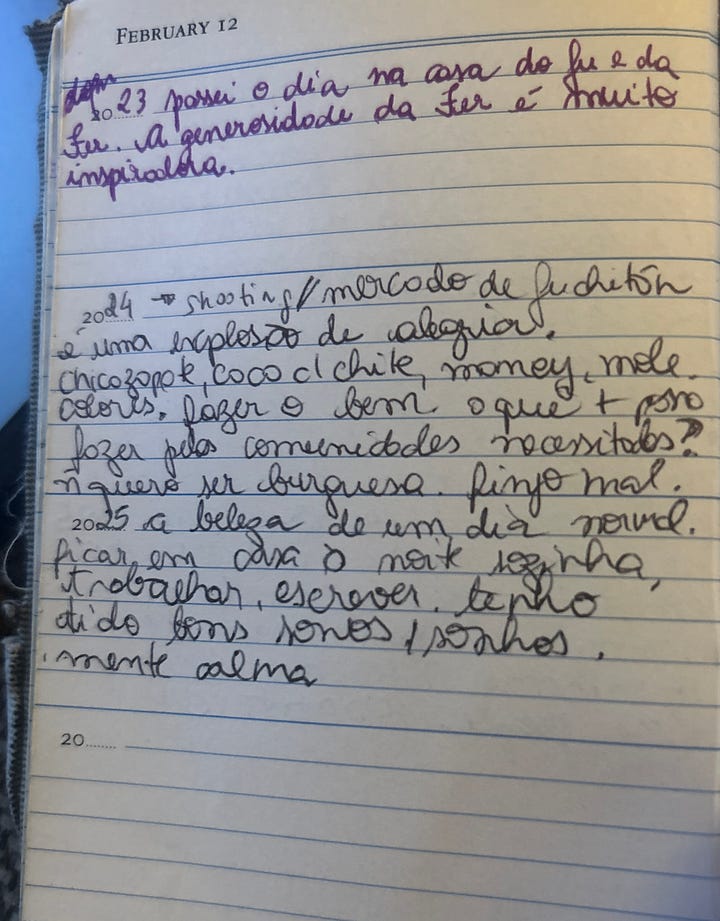 FEBRUARY 12
2023 passei o dia na casa do Ju e da
Fer. A generosidade da Fer é muito
inspiradora.
2024 → shooting // mercado de Juchitón
é uma explosão de alegria.
chicozopote, coco c/ chile, mamey, mole.
colores. fazer o bem. o que + posso
fazer pelas comunidades necessitadas?
ñ quero ser burguesa. finjo mal.
2025 a beleza de um dia normal.
ficar em casa à noite sozinha,
trabalhar, escrever. tenho
dido bons sonos / sonhos.
mente calma
20